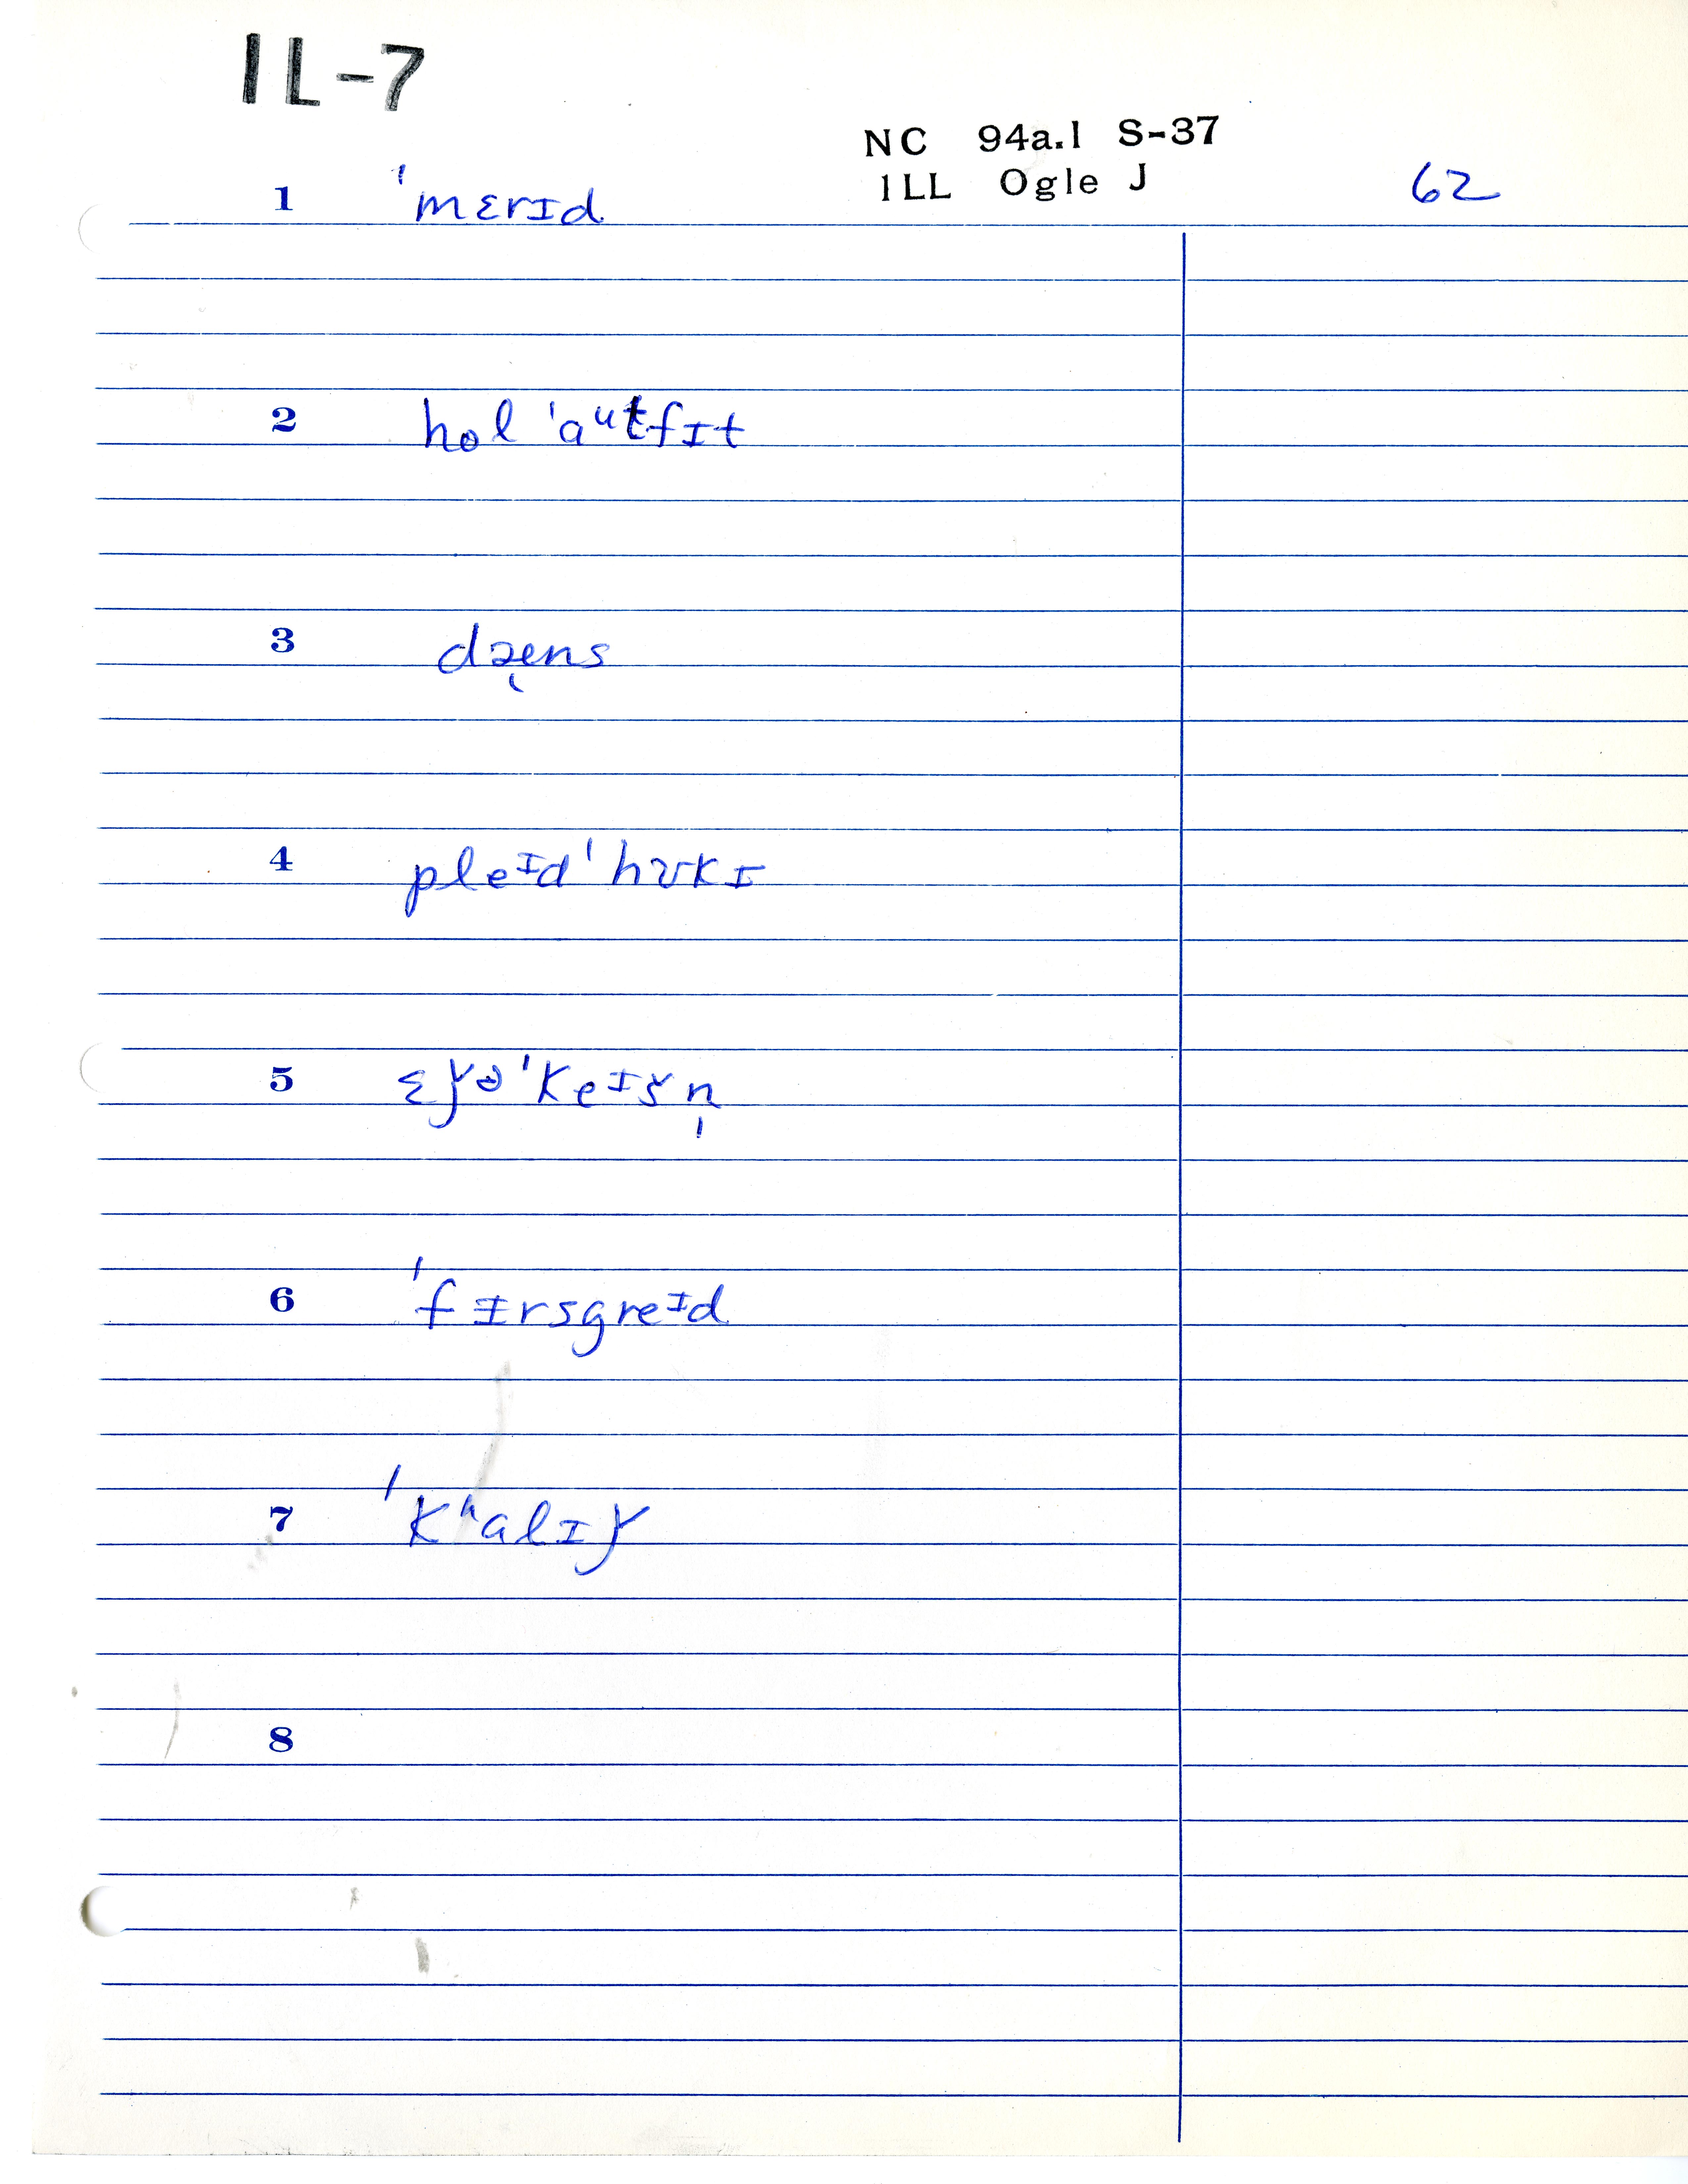 IL-7
NC 94a.1 S-37
ILL Ogle J
62
1 ˈmɛrɪd
2 hol ˈaᵘtfɪt
3 dæ̨ns
4 pleᶦd ˈhʊkɪ
5 ɛǰəˈkeᶦšn̩
6 ˈfɪrsgreᶦd
7 ˈkʰalɪǰ
8